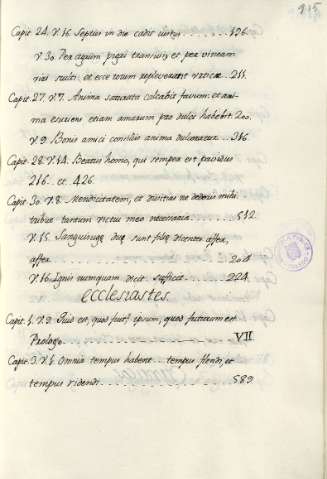 215
Capit. 24. V. 16. Septies in die cadit iustus . . . . . . . . 196.
V. 30. Per agrum pigri transivis et per vineam
viri stulti: et ecce totum repleverant urticæ. . 211.
Capit. 27. V. 7. Anima saturata calcabit favum: et ani-
ma esuriens etiam amarum pro dulci habebit. 200.
V. 9. Bonis amici consiliis anima dulcoratur. . . 316.
Capit. 28. V. 14. Beatus homo, qui semper est pavidus
216. et 426.
Capit. 30. V. 8. Mendicitatem, et divitias ne dederis mihi
tribue tantum victui meo necessaria. . . . . . . 512.
V. 15. Sanguisugæ duæ sunt filiæ dicentes affer,
affer. . . . . . . . . . . . . . . . . . . . 208
V. 16. Ignis numquam dicit: sufficit. . . . . . . 224.
Ecclesiastes.
Capit. 1. V. 9. Quid est, quod fuit? ipsum, quod futurum est
Prologo. . . . . . . . . . . . . . . . . . . VII.
Capit. 3. V. 1. Omnia tempus habent . . tempus flendi, et
tempus ridendi. . . . . . . . . . . . . . . . 589.